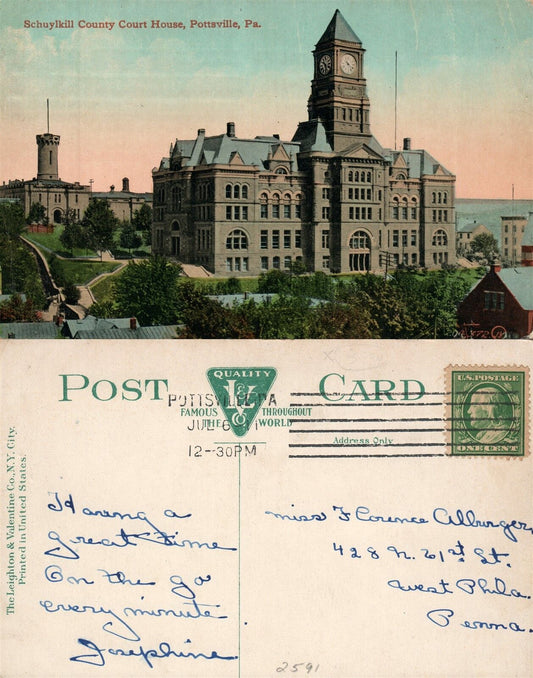 Schuylkill County Court House, Pottsville, Pa.
POST CARD
QUALITY
L&V
FAMOUS THROUGHOUT
THE WORLD
POTTSVILLE PA
JUL 6
12-30PM
Address Only
U.S. POSTAGE
ONE CENT
The Leighton & Valentine Co., N.Y. City.
Printed in United States.
Having a
great time
On the go
every minute
Josephine
miss Florence Alburger,
428 N. 61st St.
West Phila.
Penna.
2591